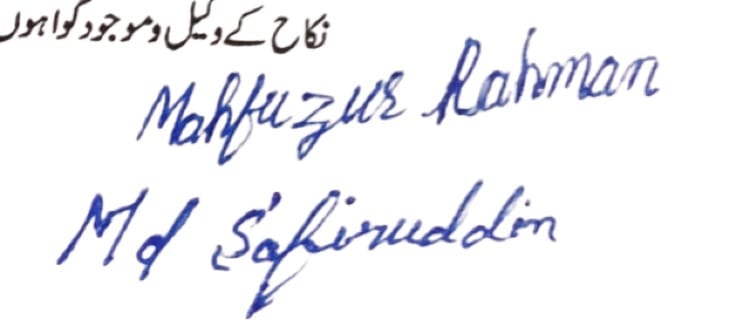 نکاح کے وکیل و موجود گواہوں
Mahfuzur Rahman
Md Safiruddin